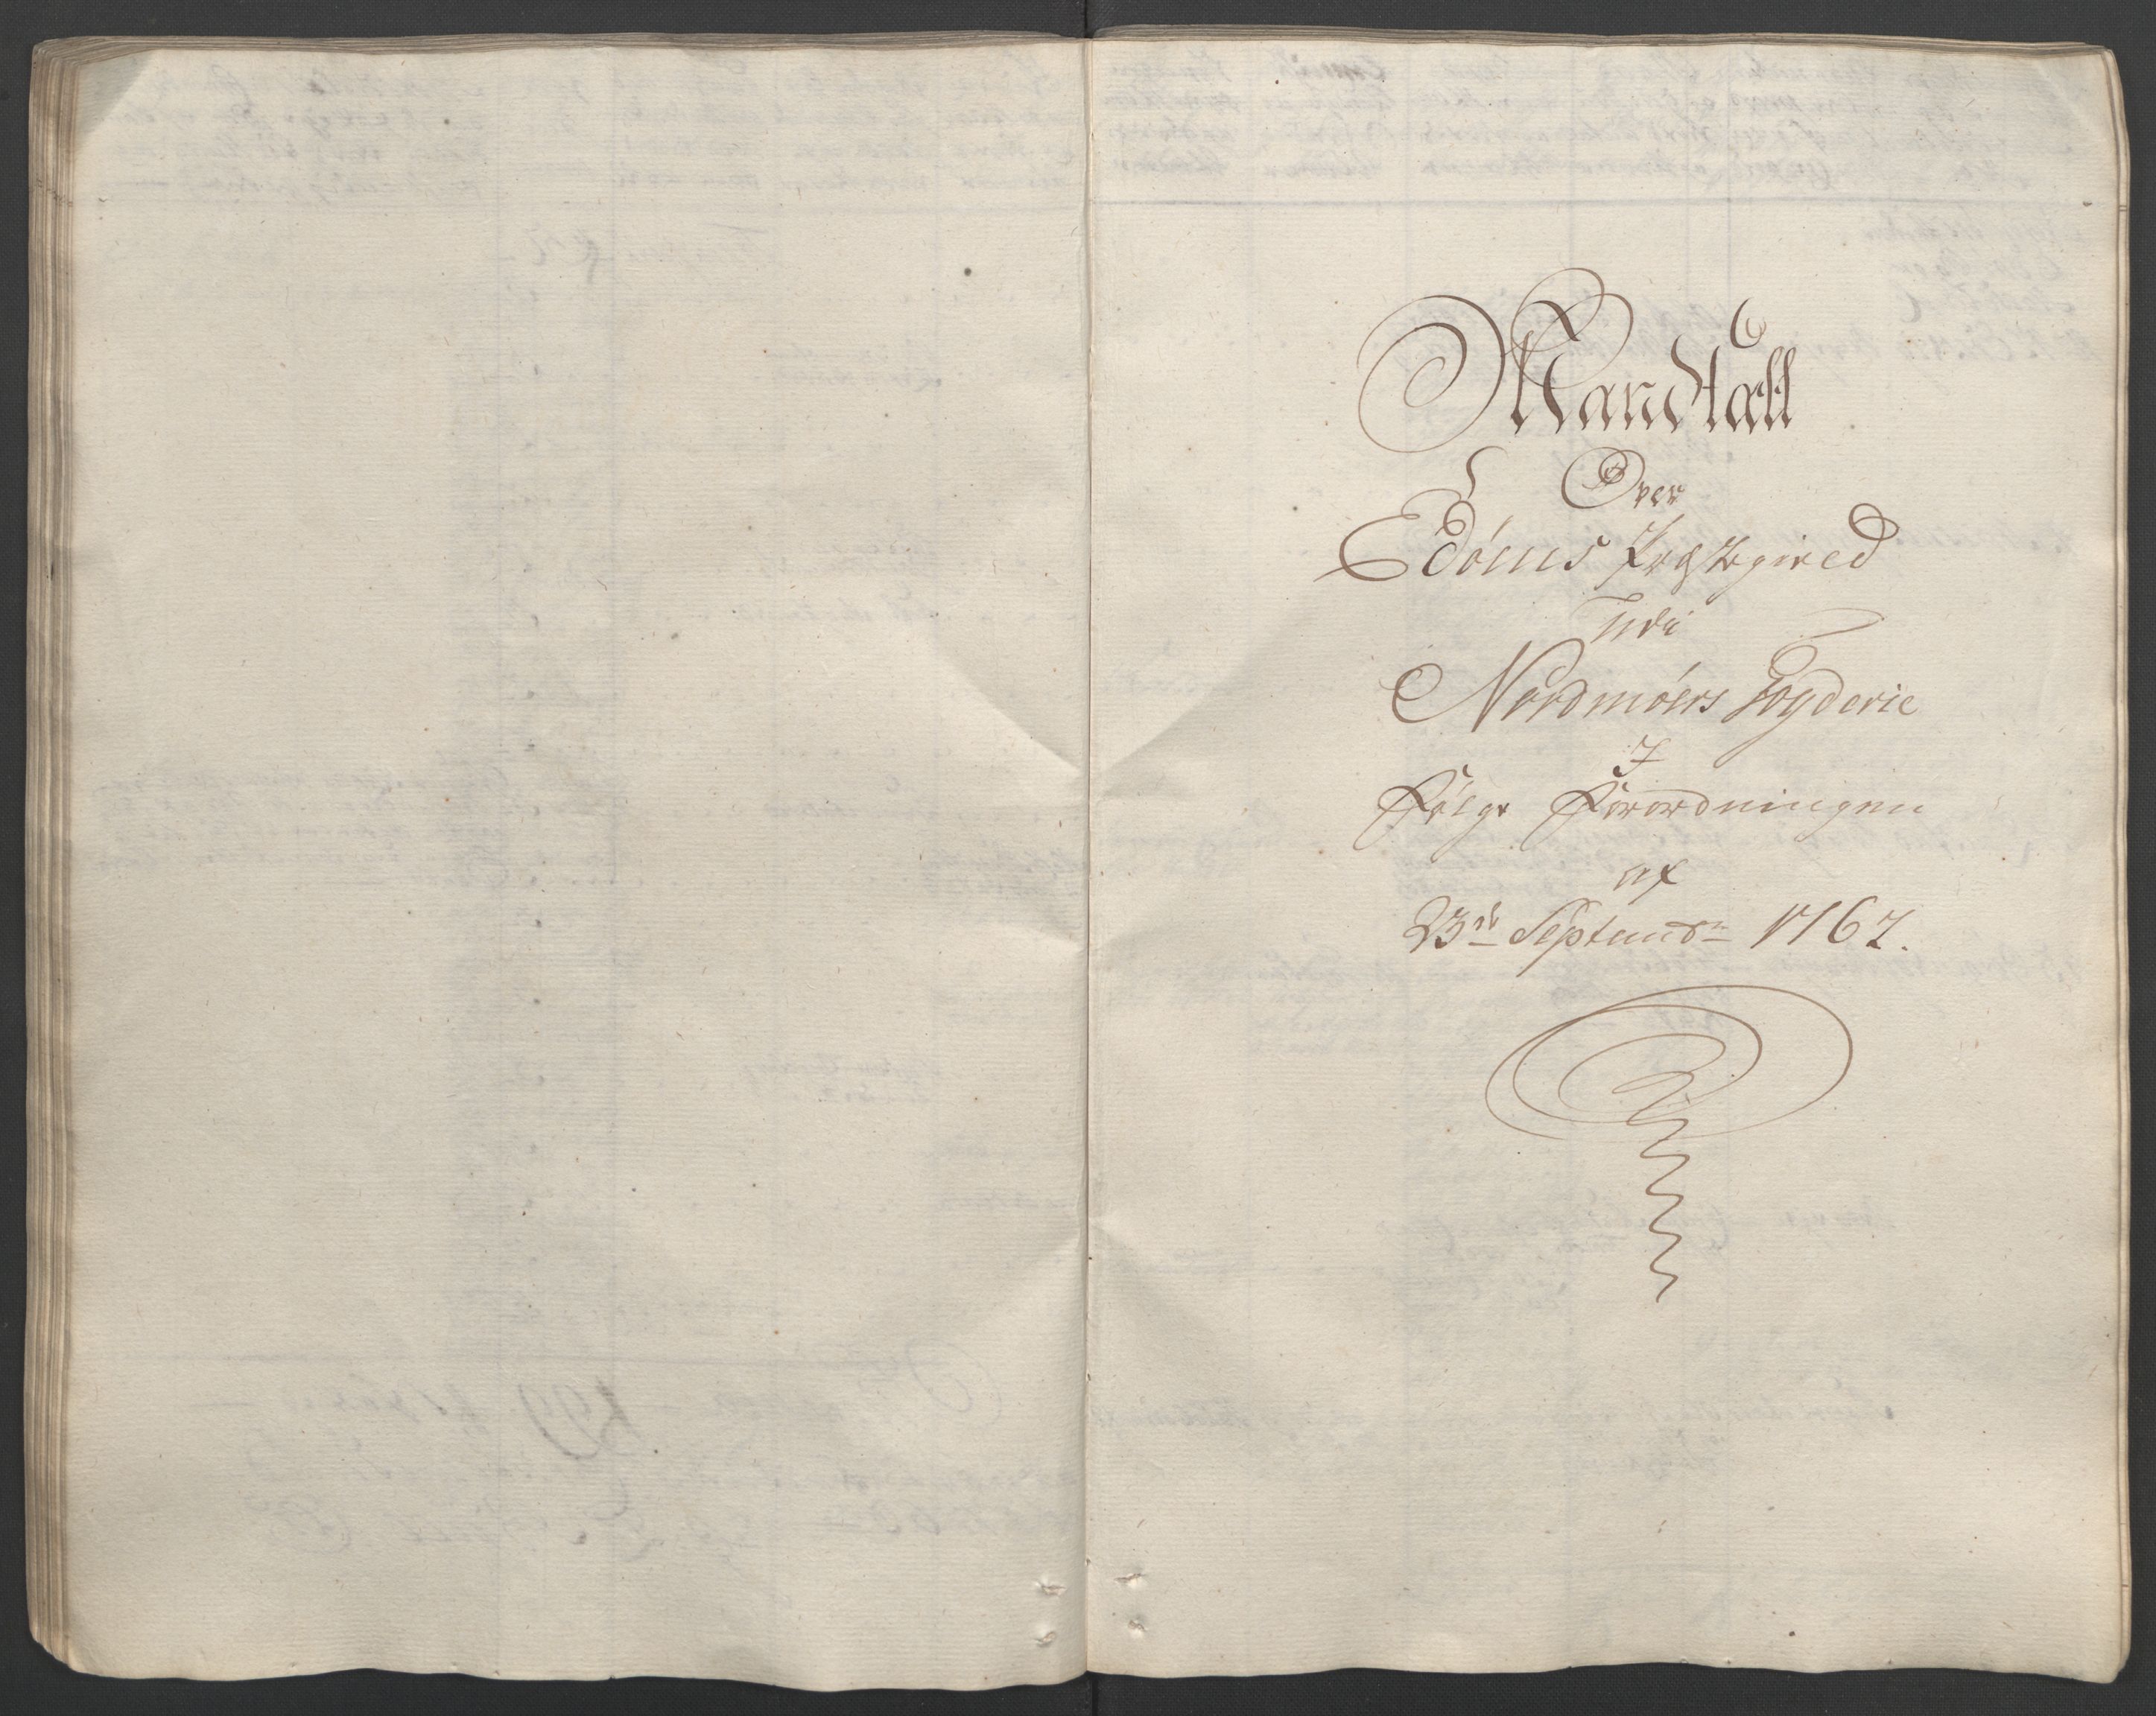 Mandtall
Over
Edöens Præstegield
Udi
Nordmöers Fogderie
I
Fölge Forordningen
af
23de Septembr 1762.